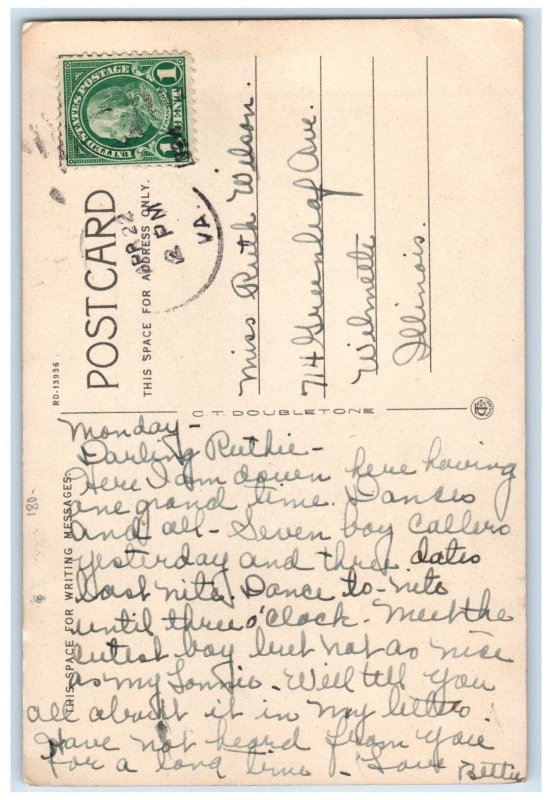 UNITED STATES POSTAGE
1 ONE CENT 1
APR 22
2 PM
VA.
POST CARD
THIS SPACE FOR ADDRESS ONLY.
RD-13936
Miss Ruth Wilson.
714 Greenleaf Ave.
Wilmette
Illinois.
C.T. DOUBLETONE
THIS SPACE FOR WRITING MESSAGES
180-
Monday -
Darling Ruthie -
Here I am down here having
one grand time. Dances
and all - Seven boy callers
yesterday and three dates
last nite. Dance to-nite
until three o'clock. Meet the
cutest boy but not as nice
as my Lonnie. Will tell you
all about it in my letter.
Have not heard from you
for a long time - Love Bettie